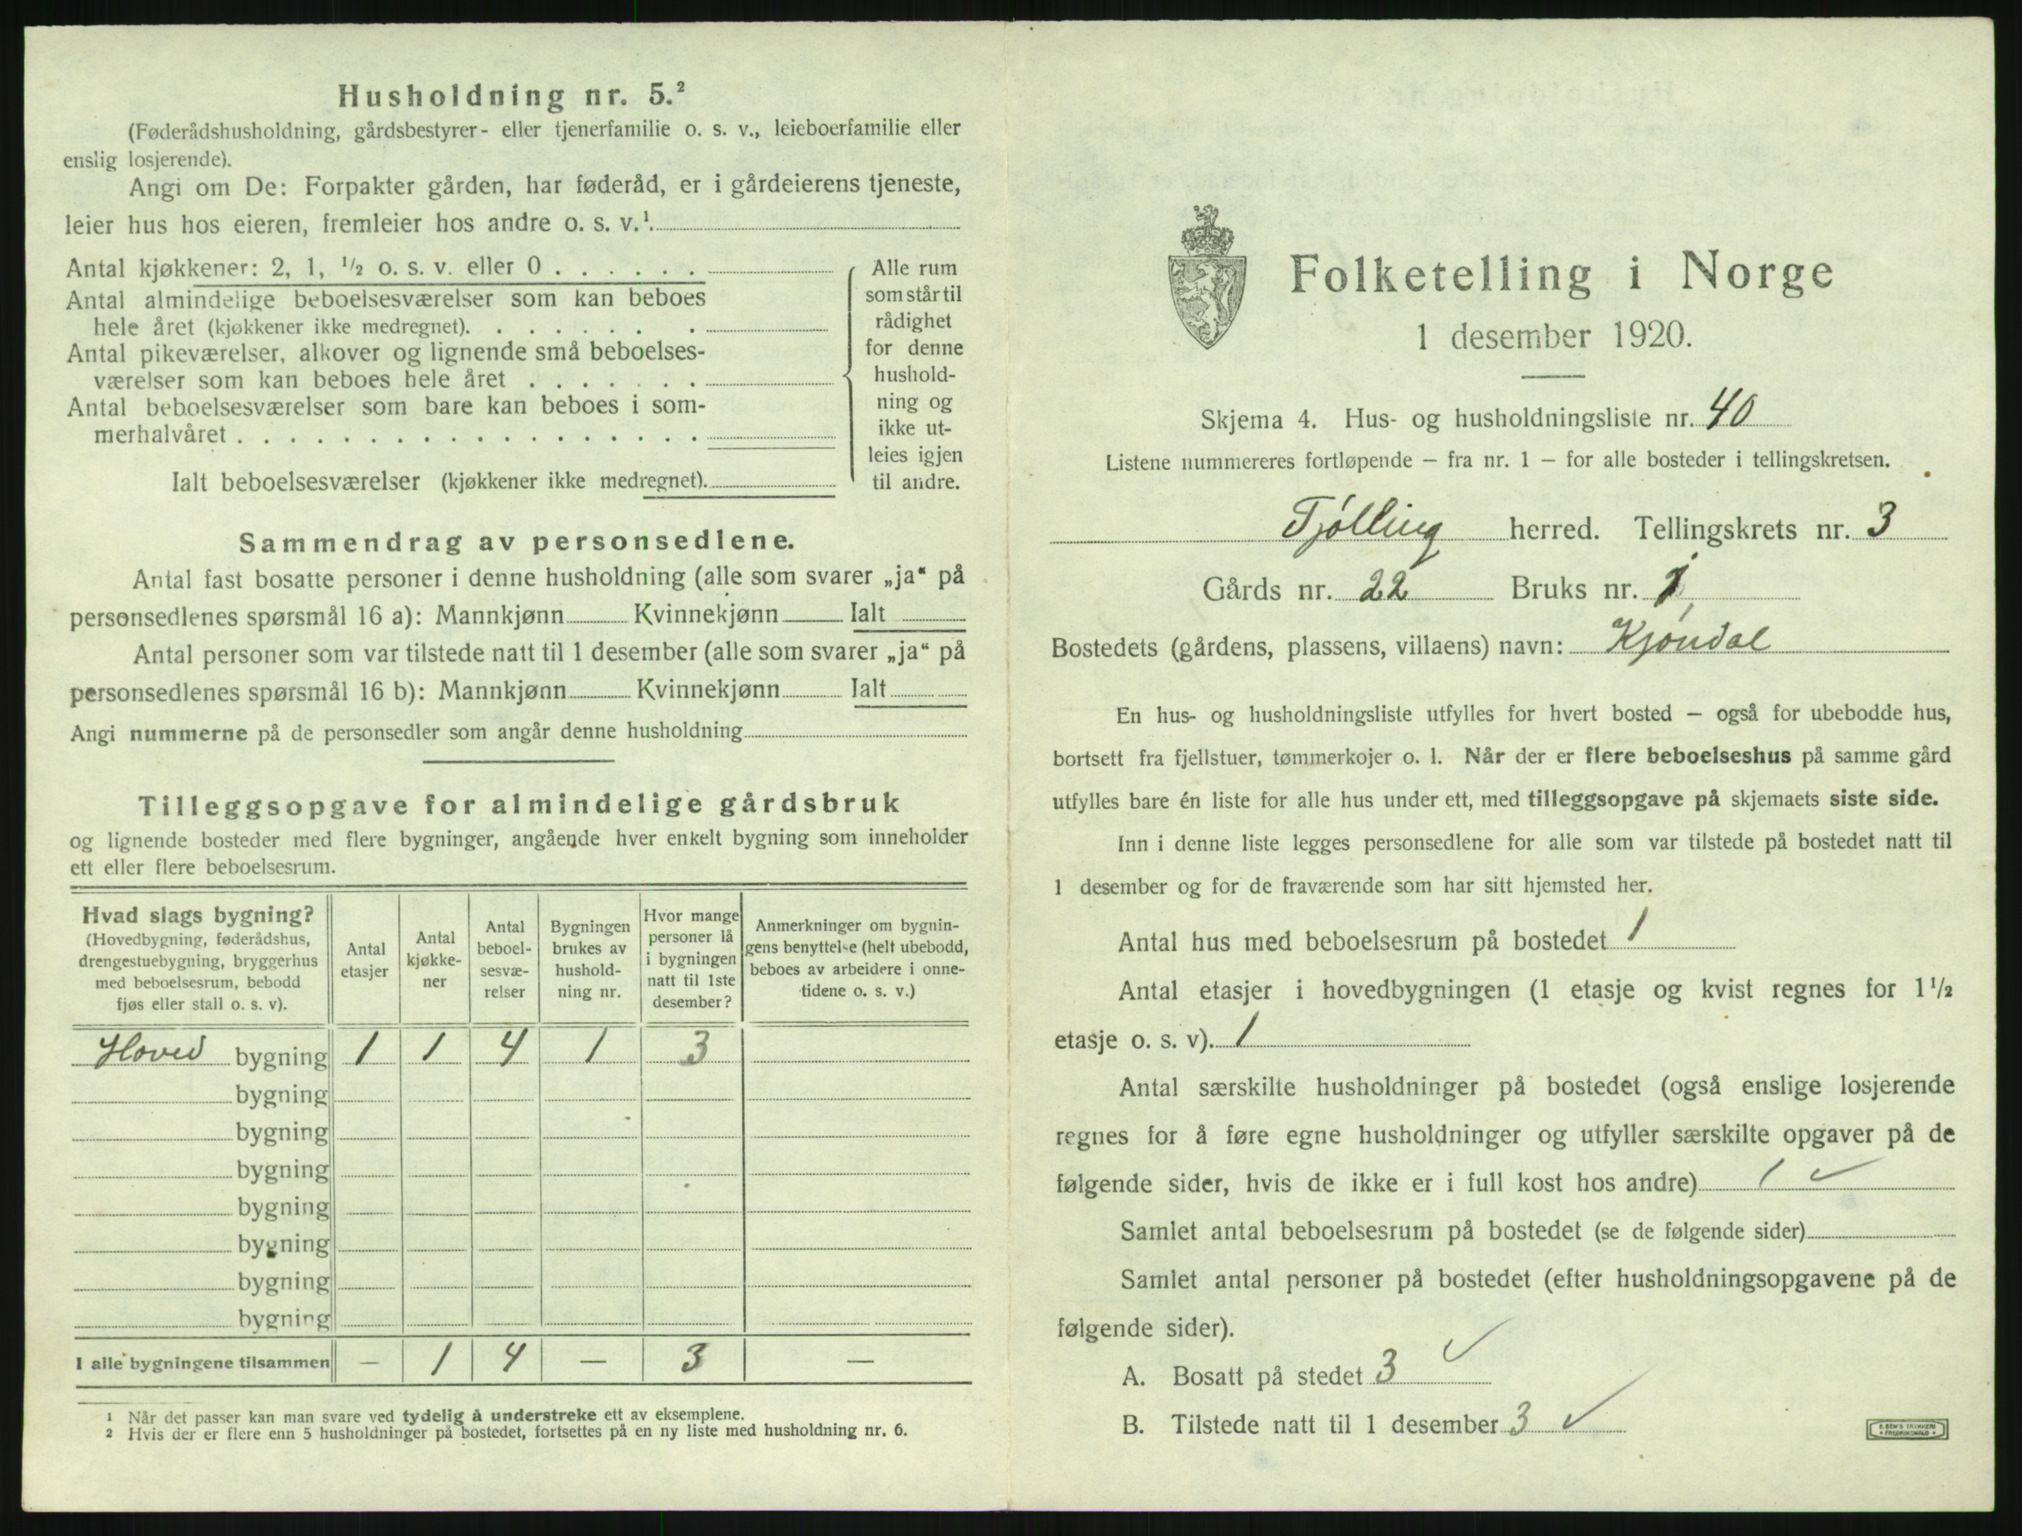 Husholdning nr. 5.²
(Føderådshusholdning, gårdsbestyrer- eller tjenerfamilie o. s. v., leieboerfamilie eller
enslig losjerende).
Angi om De: Forpakter gården, har føderåd, er i gårdeierens tjeneste,
leier hus hos eieren, fremleier hos andre o. s. v.¹.
Antal kjøkkener: 2, 1, ½ o. s. v. eller 0 . . . . . .
Antal almindelige beboelsesværelser som kan beboes
hele året (kjøkkener ikke medregnet). . . . . . . . .
Antal pikeværelser, alkover og lignende små beboelses-
værelser som kan beboes hele året . . . . . . .
Antal beboelsesværelser som bare kan beboes i som-
merhalvåret . . . . . . . . . . . . . . . . . .
Ialt beboelsesværelser (kjøkkener ikke medregnet).
Alle rum
som står til
rådighet
for denne
hushold-
ning og
ikke ut-
leies igjen
til andre.
Sammendrag av personsedlene.
Antal fast bosatte personer i denne husholdning (alle som svarer „ja“ på
personsedlenes spørsmål 16 a): Mannkjønn Kvinnekjønn Ialt
Antal personer som var tilstede natt til 1 desember (alle som svarer „ja“ på
personsedlenes spørsmål 16 b): Mannkjønn Kvinnekjønn Ialt
Angi nummerne på de personsedler som angår denne husholdning
Tilleggsopgave for almindelige gårdsbruk
og lignende bosteder med flere bygninger, angående hver enkelt bygning som inneholder
ett eller flere beboelsesrum.
Hvad slags bygning?
(Hovedbygning, føderådshus,
drengestuebygning, bryggerhus
med beboelsesrum, bebodd
fjøs eller stall o. s. v).
Antal
etasjer
Antal
kjøkke-
ner
Antal
beboel-
sesvæ-
relser
Bygningen
brukes av
hushold-
ning nr.
Hvor mange
personer lå
i bygningen
natt til 1ste
desember?
Anmerkninger om bygnin-
gens benyttelse (helt ubebodd,
beboes av arbeidere i onne-
tidene o. s. v.)
Hoved bygning 1 1 4 1 3
bygning
bygning
bygning
bygning
bygning
bygning
bygning
I alle bygningene tilsammen — 1 4 — 3 —
1 Når det passer kan man svare ved tydelig å understreke ett av eksemplene.
2 Hvis der er flere enn 5 husholdninger på bostedet, fortsettes på en ny liste med husholdning nr. 6.
Folketelling i Norge
1 desember 1920.
Skjema 4. Hus- og husholdningsliste nr. 40
Listene nummereres fortløpende — fra nr. 1 — for alle bosteder i tellingskretsen.
Tjølling herred. Tellingskrets nr. 3
Gårds nr. 22 Bruks nr. 1
Bostedets (gårdens, plassens, villaens) navn: Kjøndal
En hus- og husholdningsliste utfylles for hvert bosted — også for ubebodde hus,
bortsett fra fjellstuer, tømmerkojer o. l. Når der er flere beboelseshus på samme gård
utfylles bare én liste for alle hus under ett, med tilleggsopgave på skjemaets siste side.
Inn i denne liste legges personsedlene for alle som var tilstede på bostedet natt til
1 desember og for de fraværende som har sitt hjemsted her.
Antal hus med beboelsesrum på bostedet 1
Antal etasjer i hovedbygningen (1 etasje og kvist regnes for 1½
etasje o. s. v). 1
Antal særskilte husholdninger på bostedet (også enslige losjerende
regnes for å føre egne husholdninger og utfyller særskilte opgaver på de
følgende sider, hvis de ikke er i full kost hos andre) 1 ✓
Samlet antal beboelsesrum på bostedet (se de følgende sider)
Samlet antal personer på bostedet (efter husholdningsopgavene på de
følgende sider).
A. Bosatt på stedet 3 ✓
B. Tilstede natt til 1 desember 3 ✓